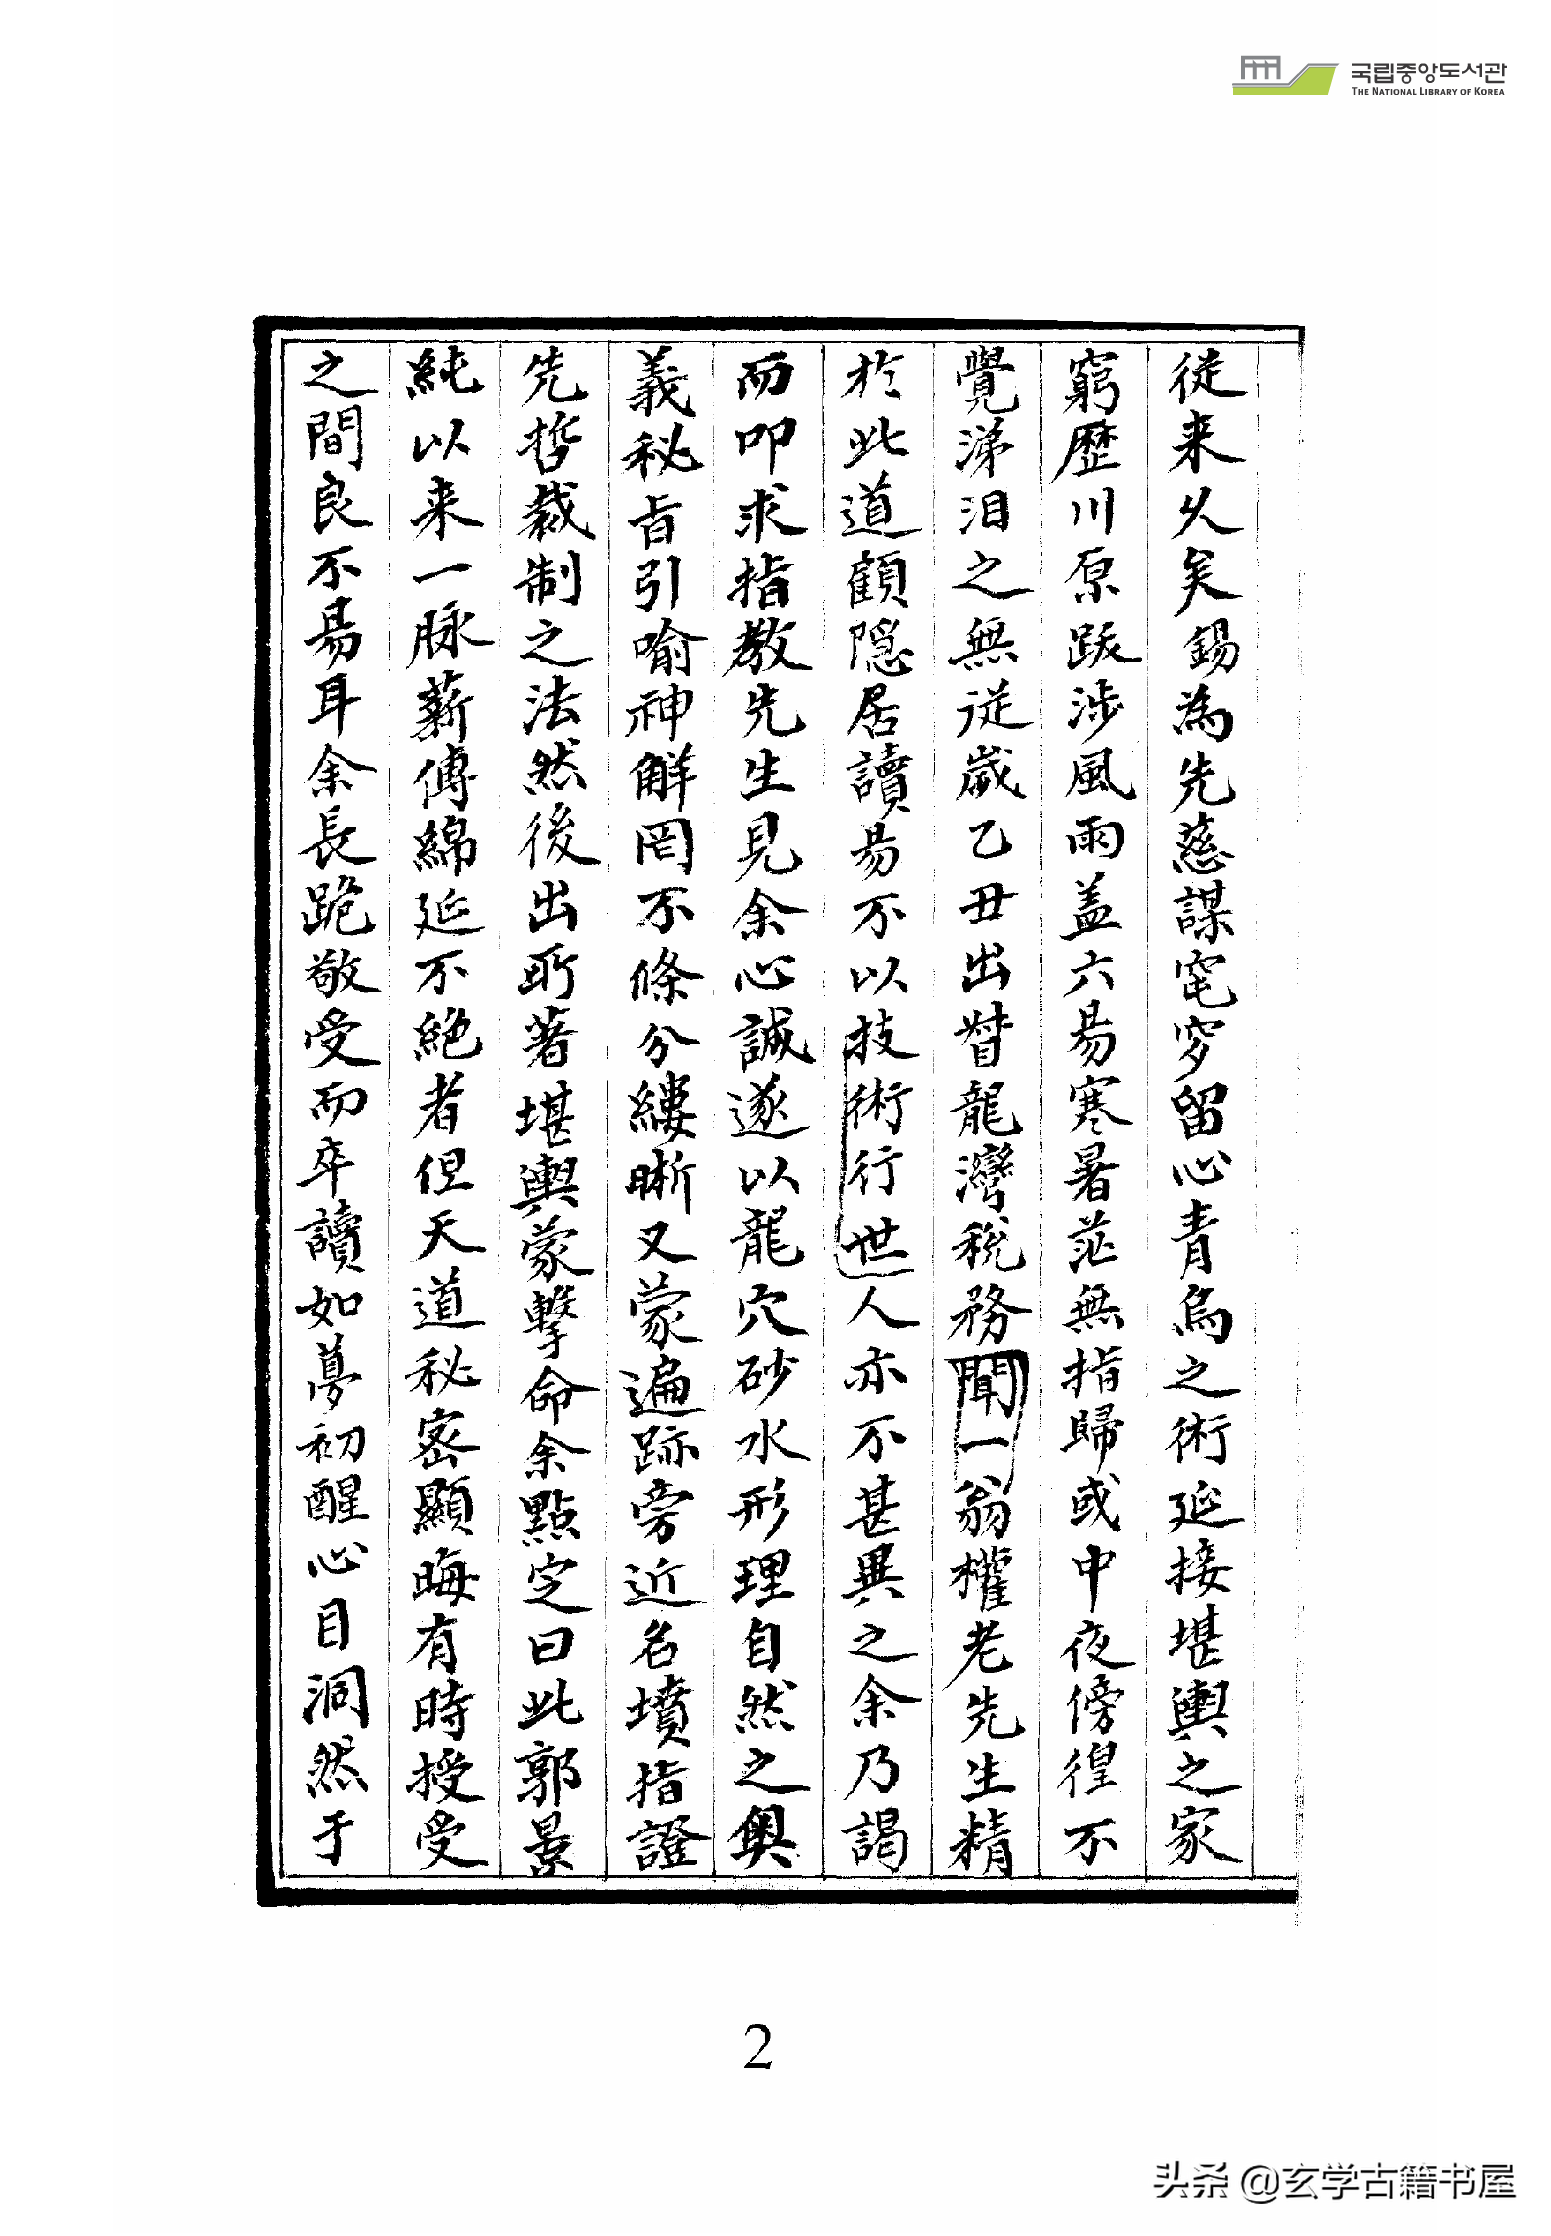 국립중앙도서관
THE NATIONAL LIBRARY OF KOREA
從来久矣錫為先慈謀窀穸留心青烏之術延接堪輿之家
窮歷川原跋涉風雨盖六昜寒暑茫無指歸或中夜傍徨不
覺涕泪之無從歲乙丑出督龍灣稅務聞一翁權老先生精
扵此道顧隠居讀昜不以技術行世人亦不甚異之余乃謁
而叩求指教先生見余心誠遂以龍穴砂水形理自然之奥
義秘旨引喻神觧罔不條分縷晰又蒙遍跡旁近名墳指證
先哲裁制之法然後出所著堪輿蒙擊命余點定曰此郭景
純以来一脉薪傳綿延不絶者但天道秘密顯晦有時授受
之間良不昜耳余長跪敬受而卒讀如夢初醒心目洞然于
2
头条 @玄学古籍书屋